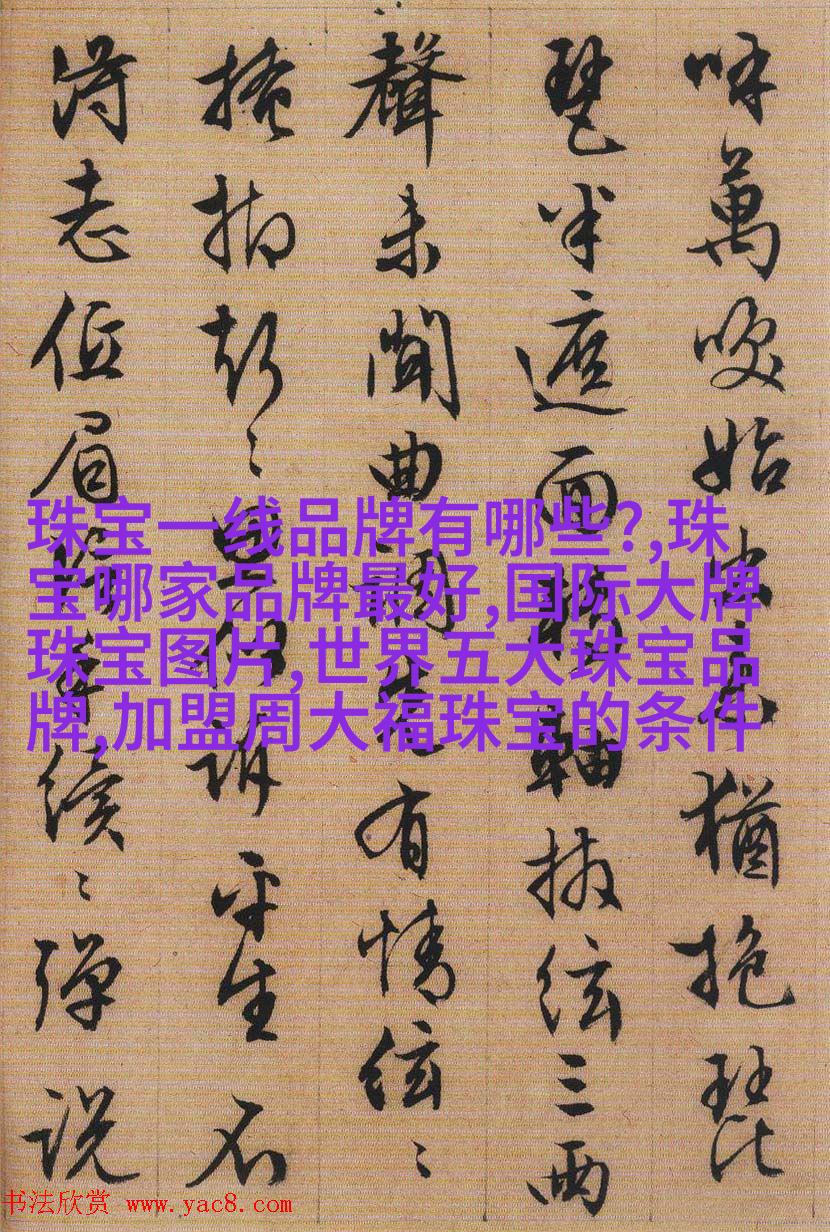 呼萬喚始出来猶抱琵
琶半遮面轉軸撥絃三兩
聲未聞曲調先有情絃〻
掩抑聲〻思似訴平生不
得志低眉信手續〻彈説
珠宝一线品牌有哪些?,珠
宝哪家品牌最好,国际大牌
珠宝图片,世界五大珠宝品
牌,加盟周大福珠宝的条件
书法欣赏 www.yac8.com